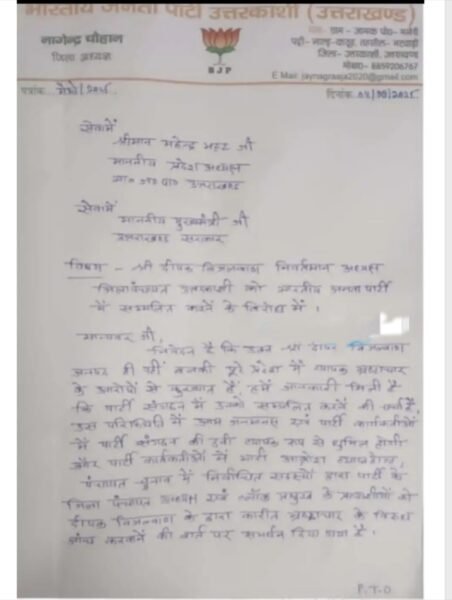 भारतीय जनता पार्टी उत्तरकाशी (उत्तराखण्ड)
नागेन्द्र चौहान
जिला अध्यक्ष
BJP
ग्राम - जामक पो०- मनेरी
जिला- उत्तरकाशी, उत्तराखण्ड
मोबा०- 8859206767
E Mail: jaynagraaja2020@gmail.com
पत्रांक
दिनांक
सेवामें
श्रीमान महेन्द्र भट्ट जी
माननीय प्रदेश अध्यक्ष
भा० ज० पा० उत्तराखण्ड
सेवामें
माननीय मुख्यमंत्री जी
उत्तराखण्ड सरकार
विषय - श्री दीपक बिजल्वाण निवर्तमान अध्यक्ष
जिला पंचायत उत्तरकाशी को भारतीय जनता पार्टी
में सम्मलित करने के विरोध में ।
मान्यवर जी,
निवेदन है कि उक्त श्री दीपक बिजल्वाण
जनपद ही नहीं बल्की पूरे प्रदेश में व्यापक भ्रष्टाचार
के आरोपों से कुख्यात हैं, हमें जानकारी मिली है
कि पार्टी संगठन में उनको सम्मलित करने की चर्चा है,
उस परिस्थिती में आम जनमानस एवं पार्टी कार्यकर्ताओं
में पार्टी संगठन की छवी व्यापक रूप से धूमिल होगी
और पार्टी कार्यकर्ताओं में भारी आक्रोश
पंचायत चुनाव में निर्वाचित सदस्यों द्वारा पार्टी के
जिला पंचायत अध्यक्ष एवं ब्लॉक प्रमुख के प्रत्याशीयों को
दीपक बिजल्वाण के द्वारा कारीत भ्रष्टाचार के विरुद्ध
जांच करवाने की शर्त पर समर्थन दिया गया है ।
P.T.O